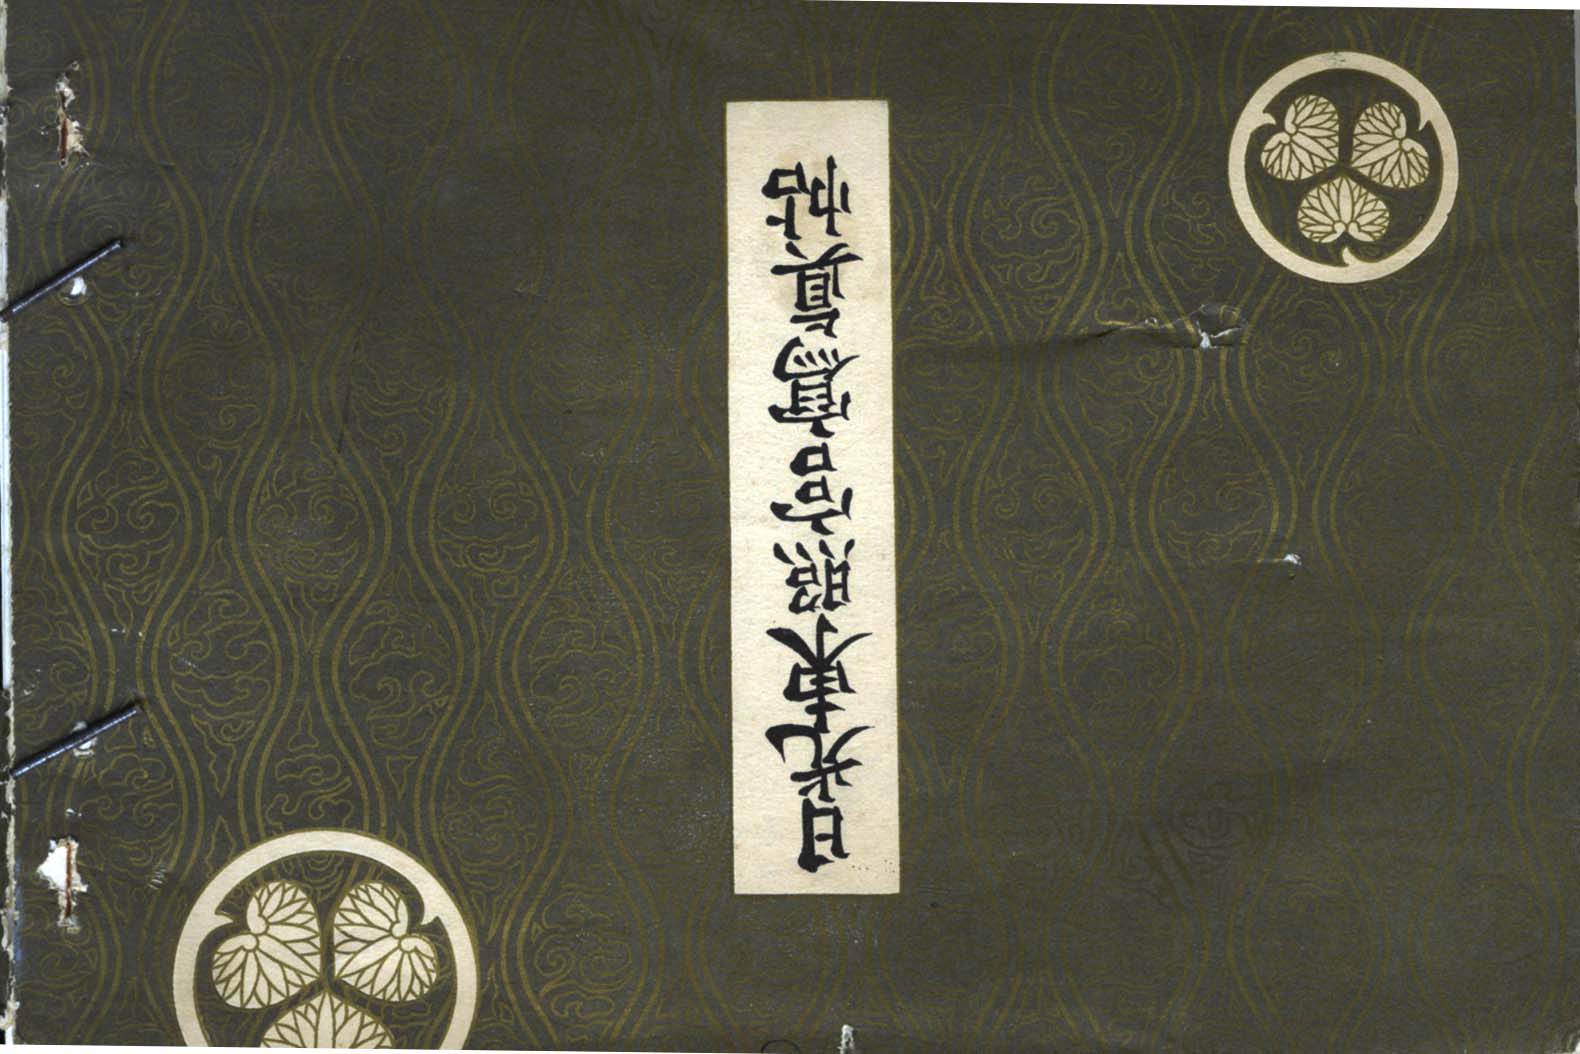 日光東照宮寫真帖